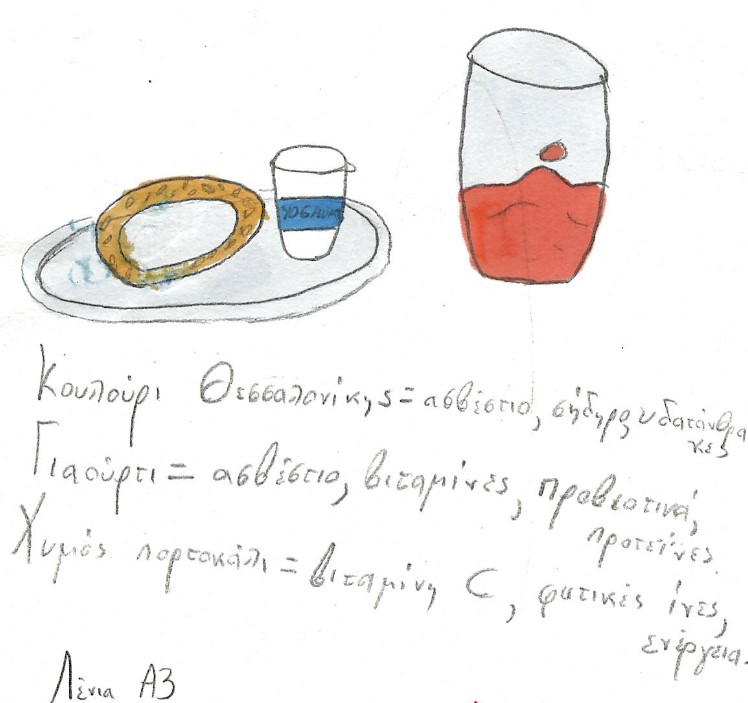 YOGHURT
Κουλούρι Θεσσαλονίκης = ασβέστιο, σήδηρο, υδατάνθρα
κες
Γιαούρτι = ασβέστιο, βιταμίνες, προβιοτικά,
πρωτεΐνες.
Χυμός πορτοκάλι = βιταμίνη C, φυτικές ίνες,
ενέργεια.
Λένια Α3